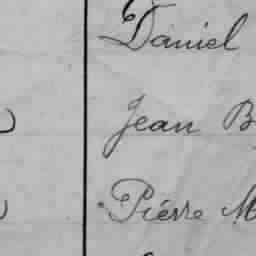 Daniel
Jean B
Piérre M